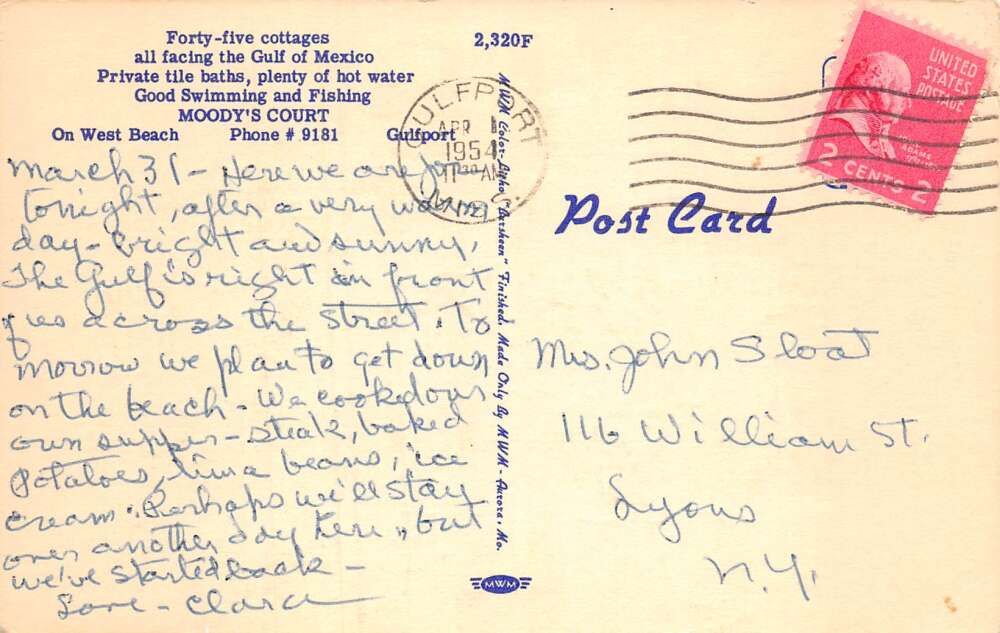 Forty-five cottages
all facing the Gulf of Mexico
Private tile baths, plenty of hot water
Good Swimming and Fishing
MOODY'S COURT
On West Beach Phone # 9181 Gulfport
2,320F
March 31 - Here we are for
tonight, after a very warm
day - bright and sunny.
The Gulf is right in front
of us across the street. To
morrow we plan to get down
on the beach - We cooked our
own supper - steak, baked
potatoes, lima beans, ice
cream. Perhaps we'll stay
over another day here, but
we've started back -
Love - Clara
MWM Color-Litho "Darsheen" Finished. Made Only By MWM - Aurora, Mo.
MWM
GULFPORT
APR 1
1954
AM
MISS
UNITED
STATES
POSTAGE
ADAMS
2 CENTS 2
Post Card
Mrs. John Sloat
116 William St.
Lyons
N.Y.